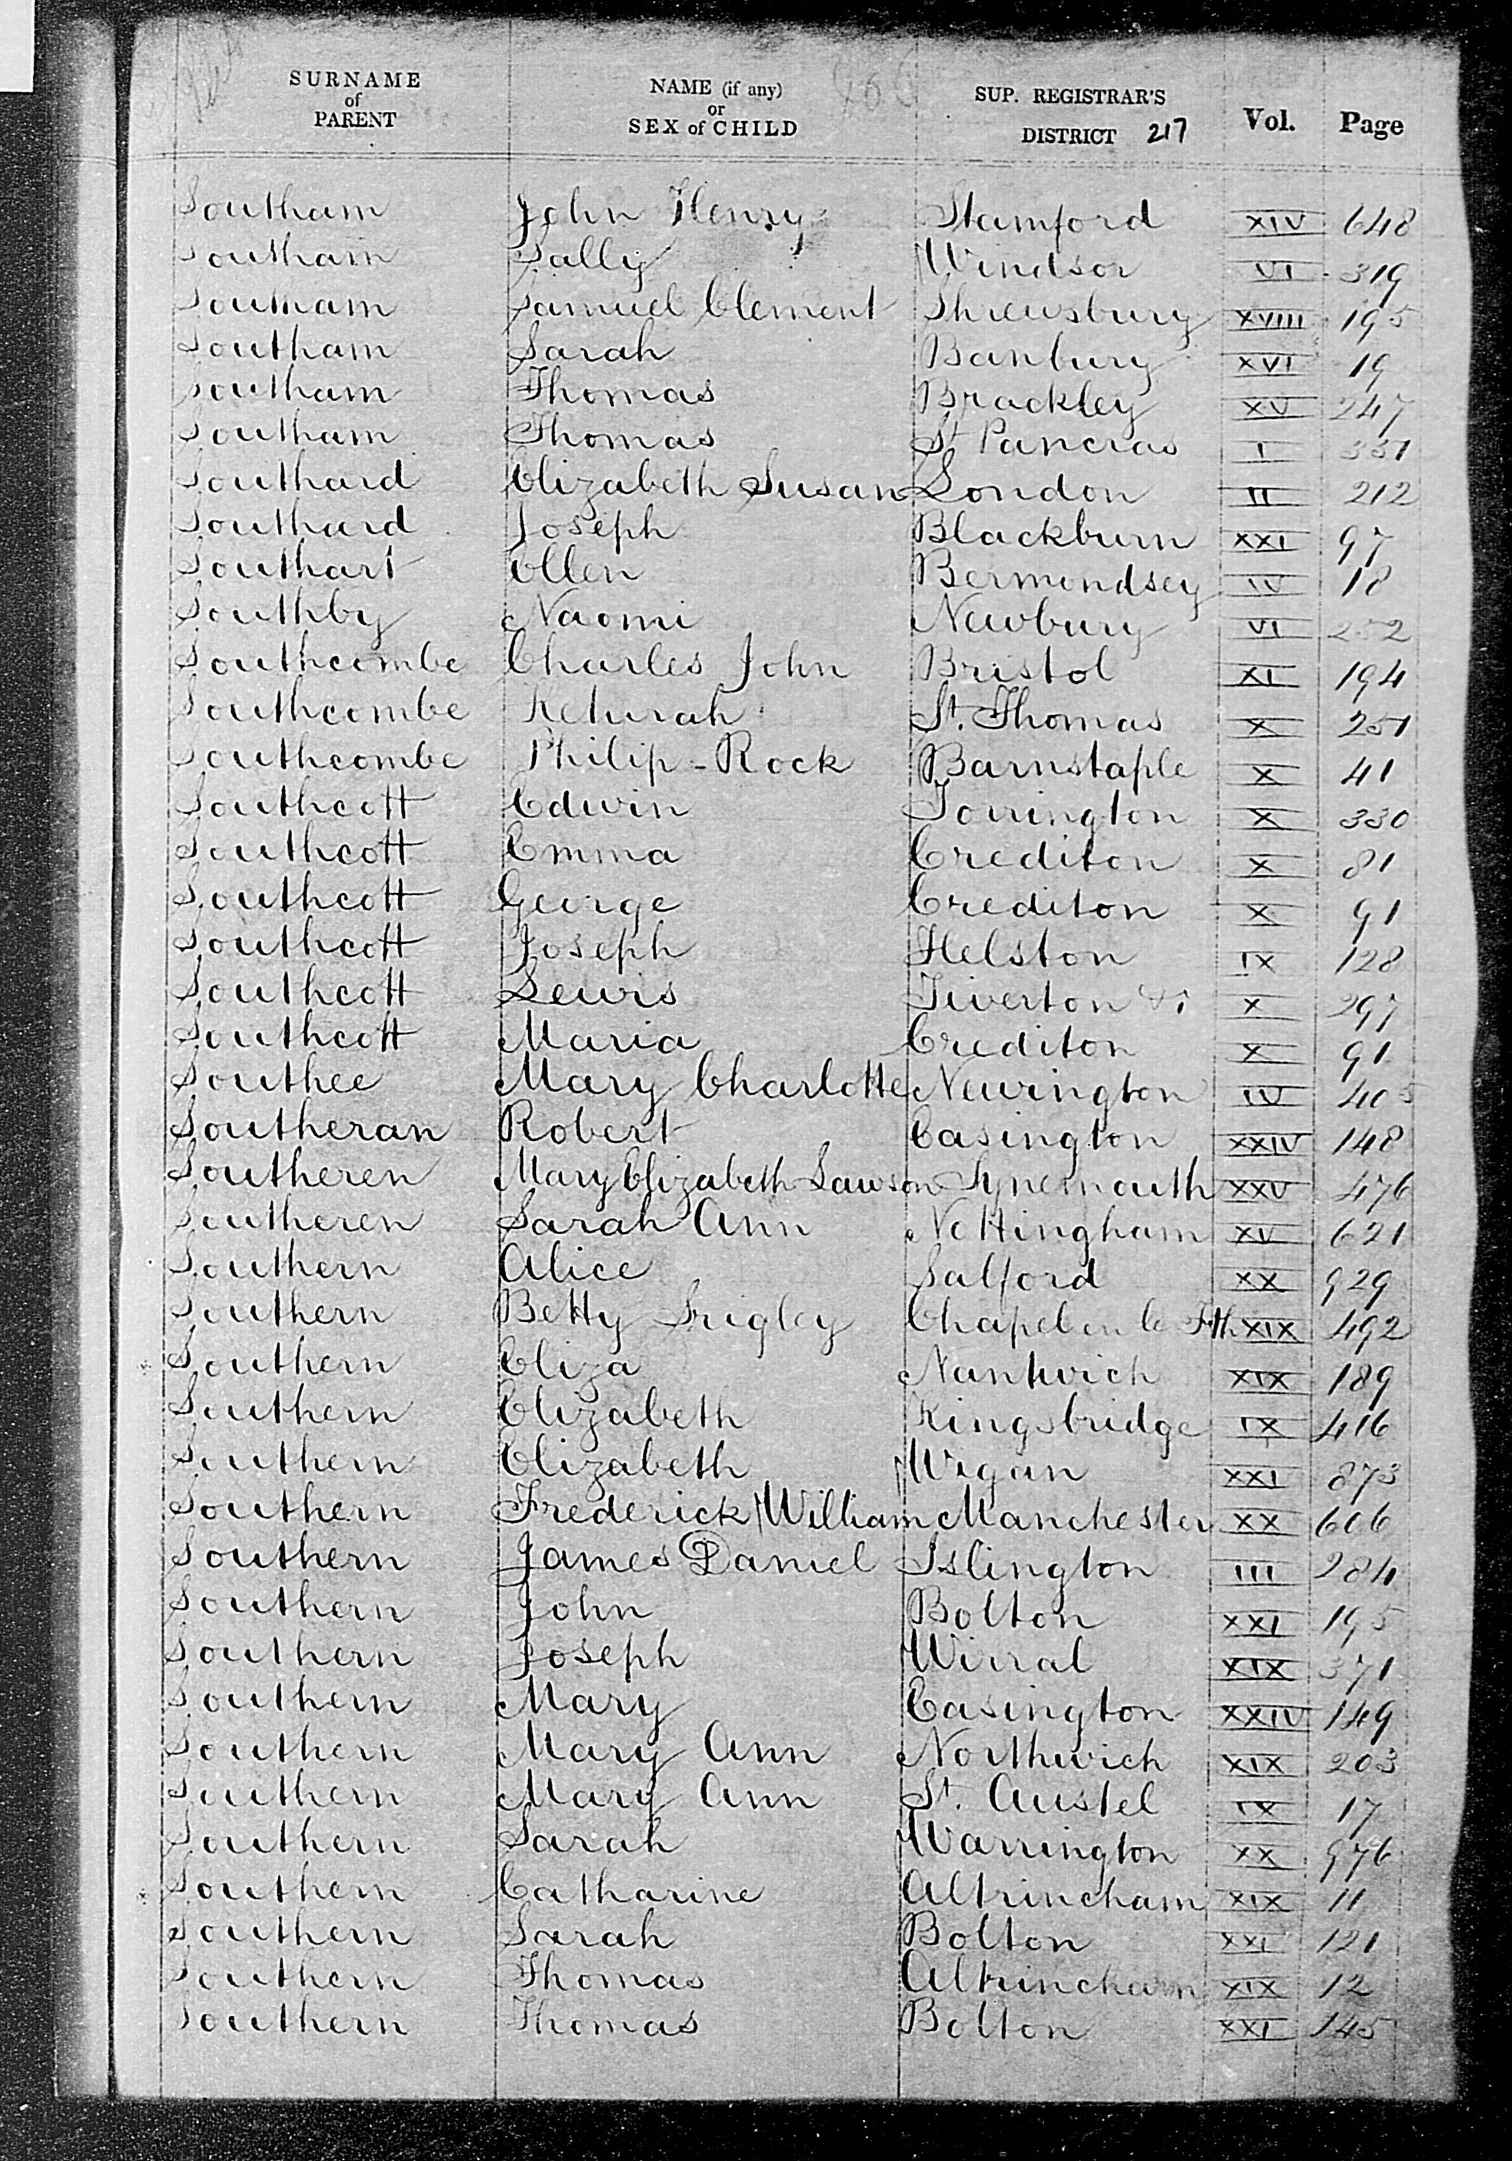 SURNAME of PARENT NAME (if any) or SEX of CHILD SUP. REGISTRAR'S DISTRICT 217 Vol. Page
Southam John Henry Stamford XIV 648
Southam Sally Windsor VI 319
Southam Samuel Clement Shrewsbury XVIII 195
Southam Sarah Banbury XVI 19
Southam Thomas Brackley XV 247
Southam Thomas St Pancras I 331
Southard Elizabeth Susan London II 212
Southard Joseph Blackburn XXI 97
Southart Ellen Bermondsey IV 18
Southby Naomi Newbury VI 252
Southcombe Charles John Bristol XI 194
Southcombe Keturah St. Thomas X 251
Southcombe Philip-Rock Barnstaple X 41
Southcott Edwin Torrington X 330
Southcott Emma Crediton X 81
Southcott George Crediton X 91
Southcott Joseph Helston IX 128
Southcott Lewis Tiverton &c X 297
Southcott Maria Crediton X 91
Southee Mary Charlotte Newington IV 405
Southeran Robert Easington XXIV 148
Southeren Mary Elizabeth Lawson Tynemouth XXV 476
Southeren Sarah Ann Nottingham XV 621
Southern Alice Salford XX 929
Southern Betty Srigley Chapel en le Fth XIX 492
Southern Eliza Nantwich XIX 189
Southern Elizabeth Kingsbridge IX 416
Southern Elizabeth Wigan XXI 873
Southern Frederick William Manchester XX 606
Southern James Daniel Islington III 284
Southern John Bolton XXI 195
Southern Joseph Wirral XIX 371
Southern Mary Easington XXIV 149
Southern Mary Ann Northwich XIX 203
Southern Mary Ann St. Austel IX 17
Southern Sarah Warrington XX 976
Southern Catharine Altrincham XIX 11
Southern Sarah Bolton XXI 121
Southern Thomas Altrincham XIX 12
Southern Thomas Bolton XXI 145